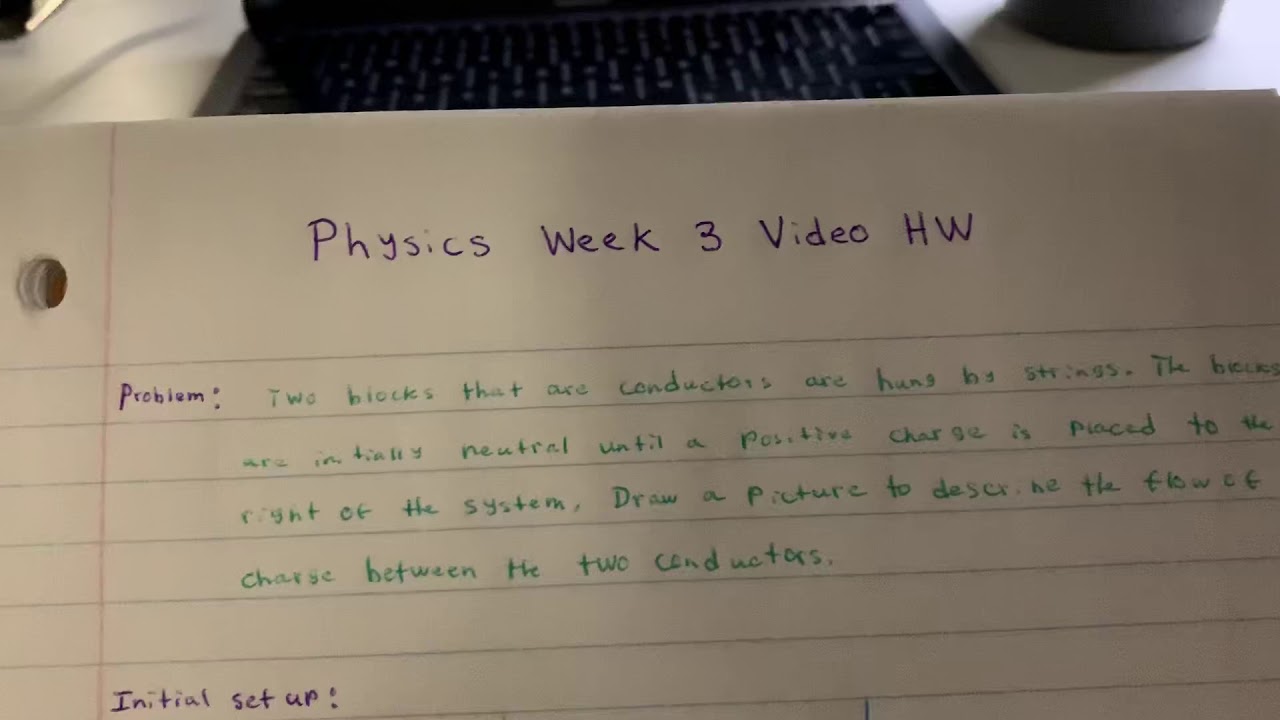 Physics Week 3 Video HW
Problem: Two blocks that are conductors are hung by strings. The blocks
are initially neutral until a positive charge is placed to the
right of the system. Draw a picture to describe the flow of
charge between the two conductors.
Initial set up: